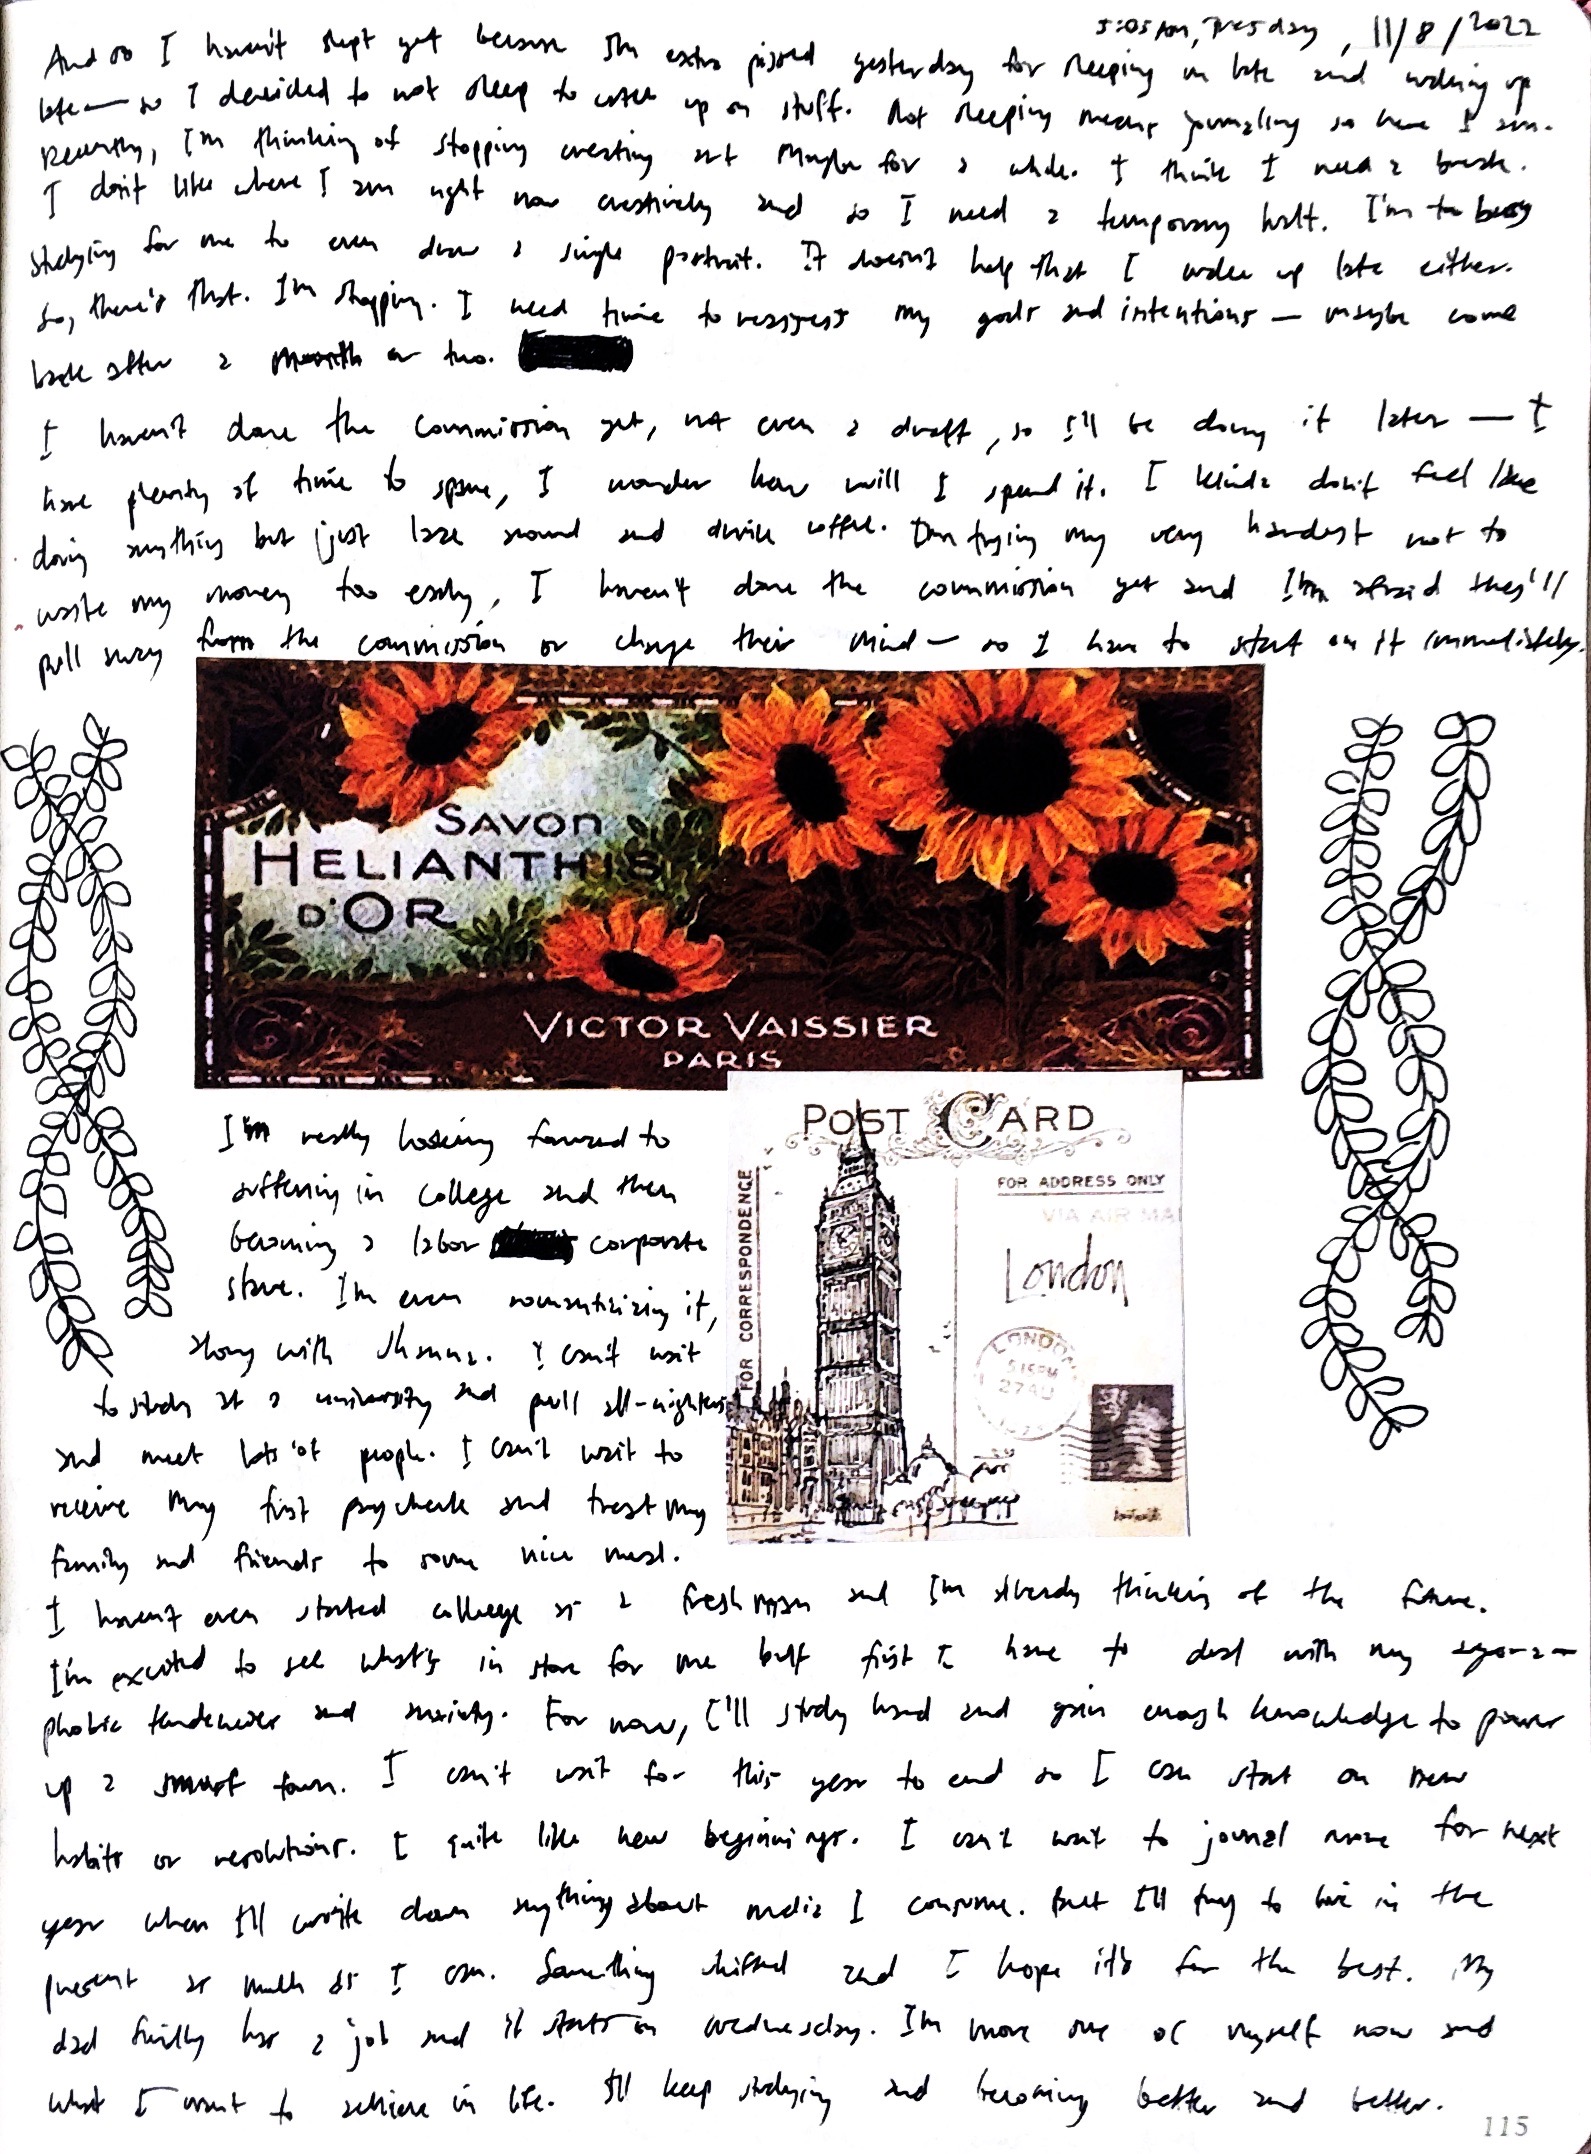 5:05 AM, Tuesday, 11/8/2022
And so I haven't slept yet because I'm extra pissed yesterday for sleeping in late and waking up
late — so I decided to not sleep to catch up on stuff. Not sleeping means journaling so here I am.
Recently, I'm thinking of stopping creating art maybe for a while. I think I need a break.
I don't like where I am right now creatively and so I need a temporary halt. I'm too busy
studying for me to even draw a single portrait. It doesn't help that I wake up late either.
So, there's that. I'm stopping. I need time to reassess my goals and intentions — maybe come
back after a month or two.
I haven't done the commission yet, not even a draft, so I'll be doing it later — I
have plenty of time to spare, I wonder how will I spend it. I kinda don't feel like
doing anything but just laze around and drink coffee. I'm trying my very hardest not to
waste my money too easily, I haven't done the commission yet and I'm afraid they'll
pull away from the commission or change their mind — so I have to start on it immediately.
SAVON
HELIANTHIS
D'OR
VICTOR VAISSIER
PARIS
POST CARD
FOR CORRESPONDENCE
FOR ADDRESS ONLY
VIA AIR MAI
London
LONDON
5 15 PM
I'm really looking forward to
suffering in college and then
becoming a labor corporate
slave. I'm even romanticizing it,
along with. I can't wait
to study at a university and pull all-nighters
and meet lots of people. I can't wait to
receive my first paycheck and treat my
family and friends to some nice meal.
I haven't even started college as a freshman and I'm already thinking of the future.
I'm excited to see what's in store for me but first I have to deal with my agora-
phobic tendencies and anxiety. For now, I'll study hard and gain enough knowledge to power
up a smart town. I can't wait for this year to end so I can start on new
habits or resolutions. I quite like new beginnings. I can't wait to journal more for next
year when I'll write down anything about media I consume. But I'll try to live in the
present as much as I can. Something shifted and I hope it's for the best. My
dad finally has a job and it starts on Wednesday. I'm more sure of myself now and
what I want to achieve in life. I'll keep studying and becoming better and better.
115